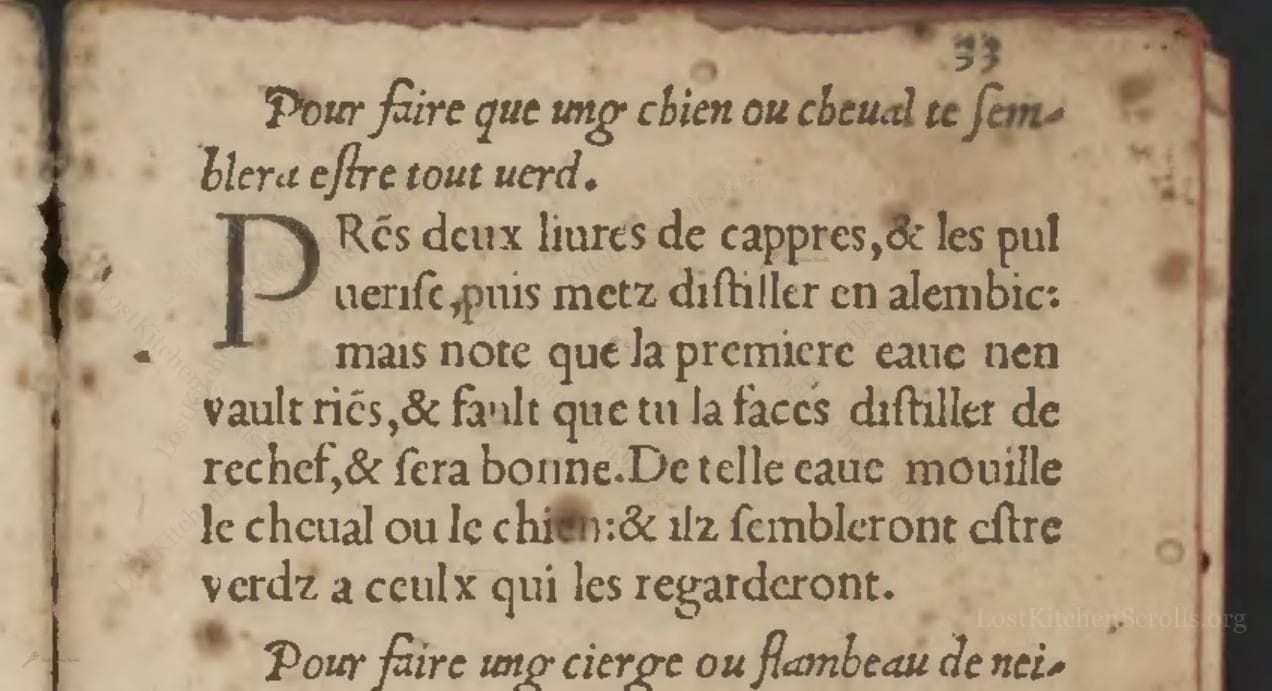 33
Pour faire que ung chien ou cheual te sem-
blera estre tout uerd.
PRẽs deux liures de cappres, & les pul
uerise, puis metz distiller en alembic:
mais note que la premiere eaue nen
vault riẽs, & fault que tu la faces distiller de
rechef, & sera bonne. De telle eaue mouille
le cheual ou le chien: & ilz sembleront estre
verdz a ceulx qui les regarderont.
LostKitchenScrolls.org
Pour faire ung cierge ou flambeau de nei-